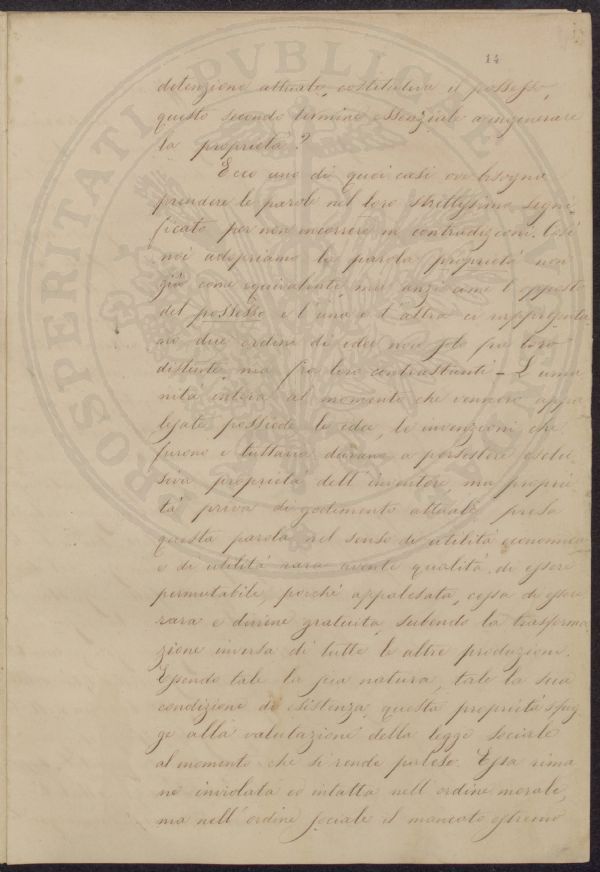 14
detenzione attuale, costitutiva il possesso,
questo secondo termine essenziale a ingenerare
la proprietà?
Ecco uno di quei casi ove bisogna
prendere le parole nel loro strettissimo signi-
ficato per non incorrere in contradizioni. Così
noi adopriamo la parola proprietà non
già come equivalente, ma anzi come l'opposto
del possesso e l'una e l'altra ci rappresenta
no due ordini di idee non solo fra loro
distinte ma fra loro contrastanti – L'uma
nità intera al momento che vennero appa
lesate possiede le idee, le invenzioni che
furono e tuttavia durano a persistere esclu
siva proprietà dell'inventore, ma proprie
tà priva di godimento attuale presa
questa parola nel senso di utilità economica
e di utilità rara avente qualità di essere
permutabile, poichè appalesata, cessa di essere
rara e diviene gratuita, subendo la trasforma
zione inversa di tutte le altre produzioni.
Essendo tale la sua natura, tale la sua
condizione di esistenza, questa proprietà sfug
ge alla valutazione della legge sociale
al momento che si rende palese. Essa rima
ne inviolata ed intatta nell'ordine morale,
ma nell'ordine sociale il mancato estremo
PROSPERITATI PVBLICAE